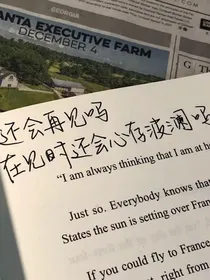 GEORGIA
ANTA EXECUTIVE FARM
DECEMBER 4
还会再见吗
在见时还会心存波澜吗
“I am always thinking that I am at h
Just so. Everybody knows that
States the sun is setting over Fran
If you could fly to France
right from